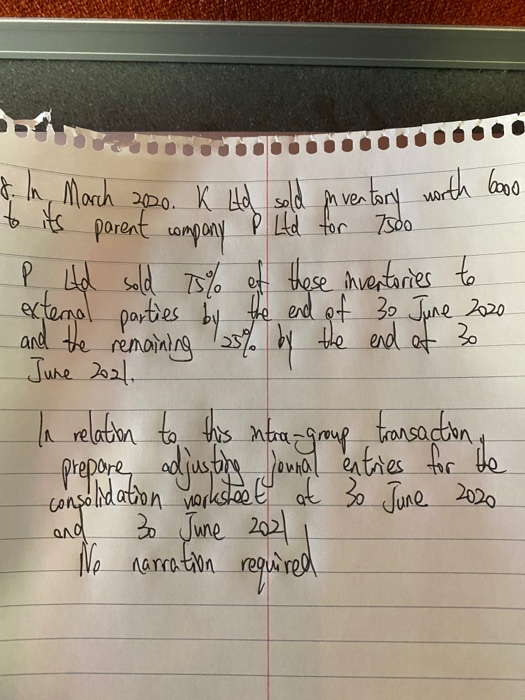 8. In March 2020. K Ltd sold inventory worth 6000
to its parent company P Ltd for 7500
P Ltd sold 75% of these inventories to
external parties by the end of 30 June 2020
and the remaining 25% by the end of 30
June 2021.
In relation to this intra-group transaction,
prepare adjusting journal entries for the
consolidation worksheet at 30 June 2020
and 30 June 2021
No narration required